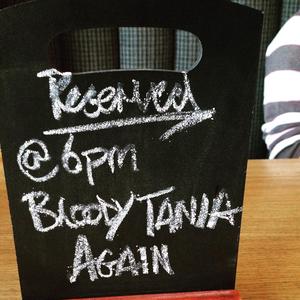 Reserved
@6pm
BLOODY TANIA
AGAIN